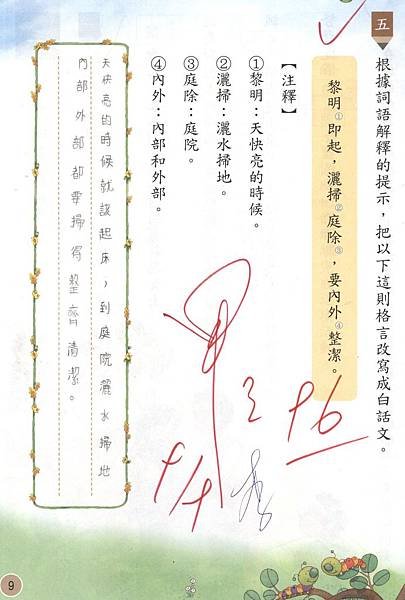 五
根據詞語解釋的提示，把以下這則格言改寫成白話文。
黎明①即起，灑掃②庭除③，要內外④整潔。
【注釋】
①黎明：天快亮的時候。
②灑掃：灑水掃地。
③庭除：庭院。
④內外：內部和外部。
天快亮的時候就該起床，到庭院灑水掃地
內部外部都要掃得整齊清潔。
甲
3/16
9